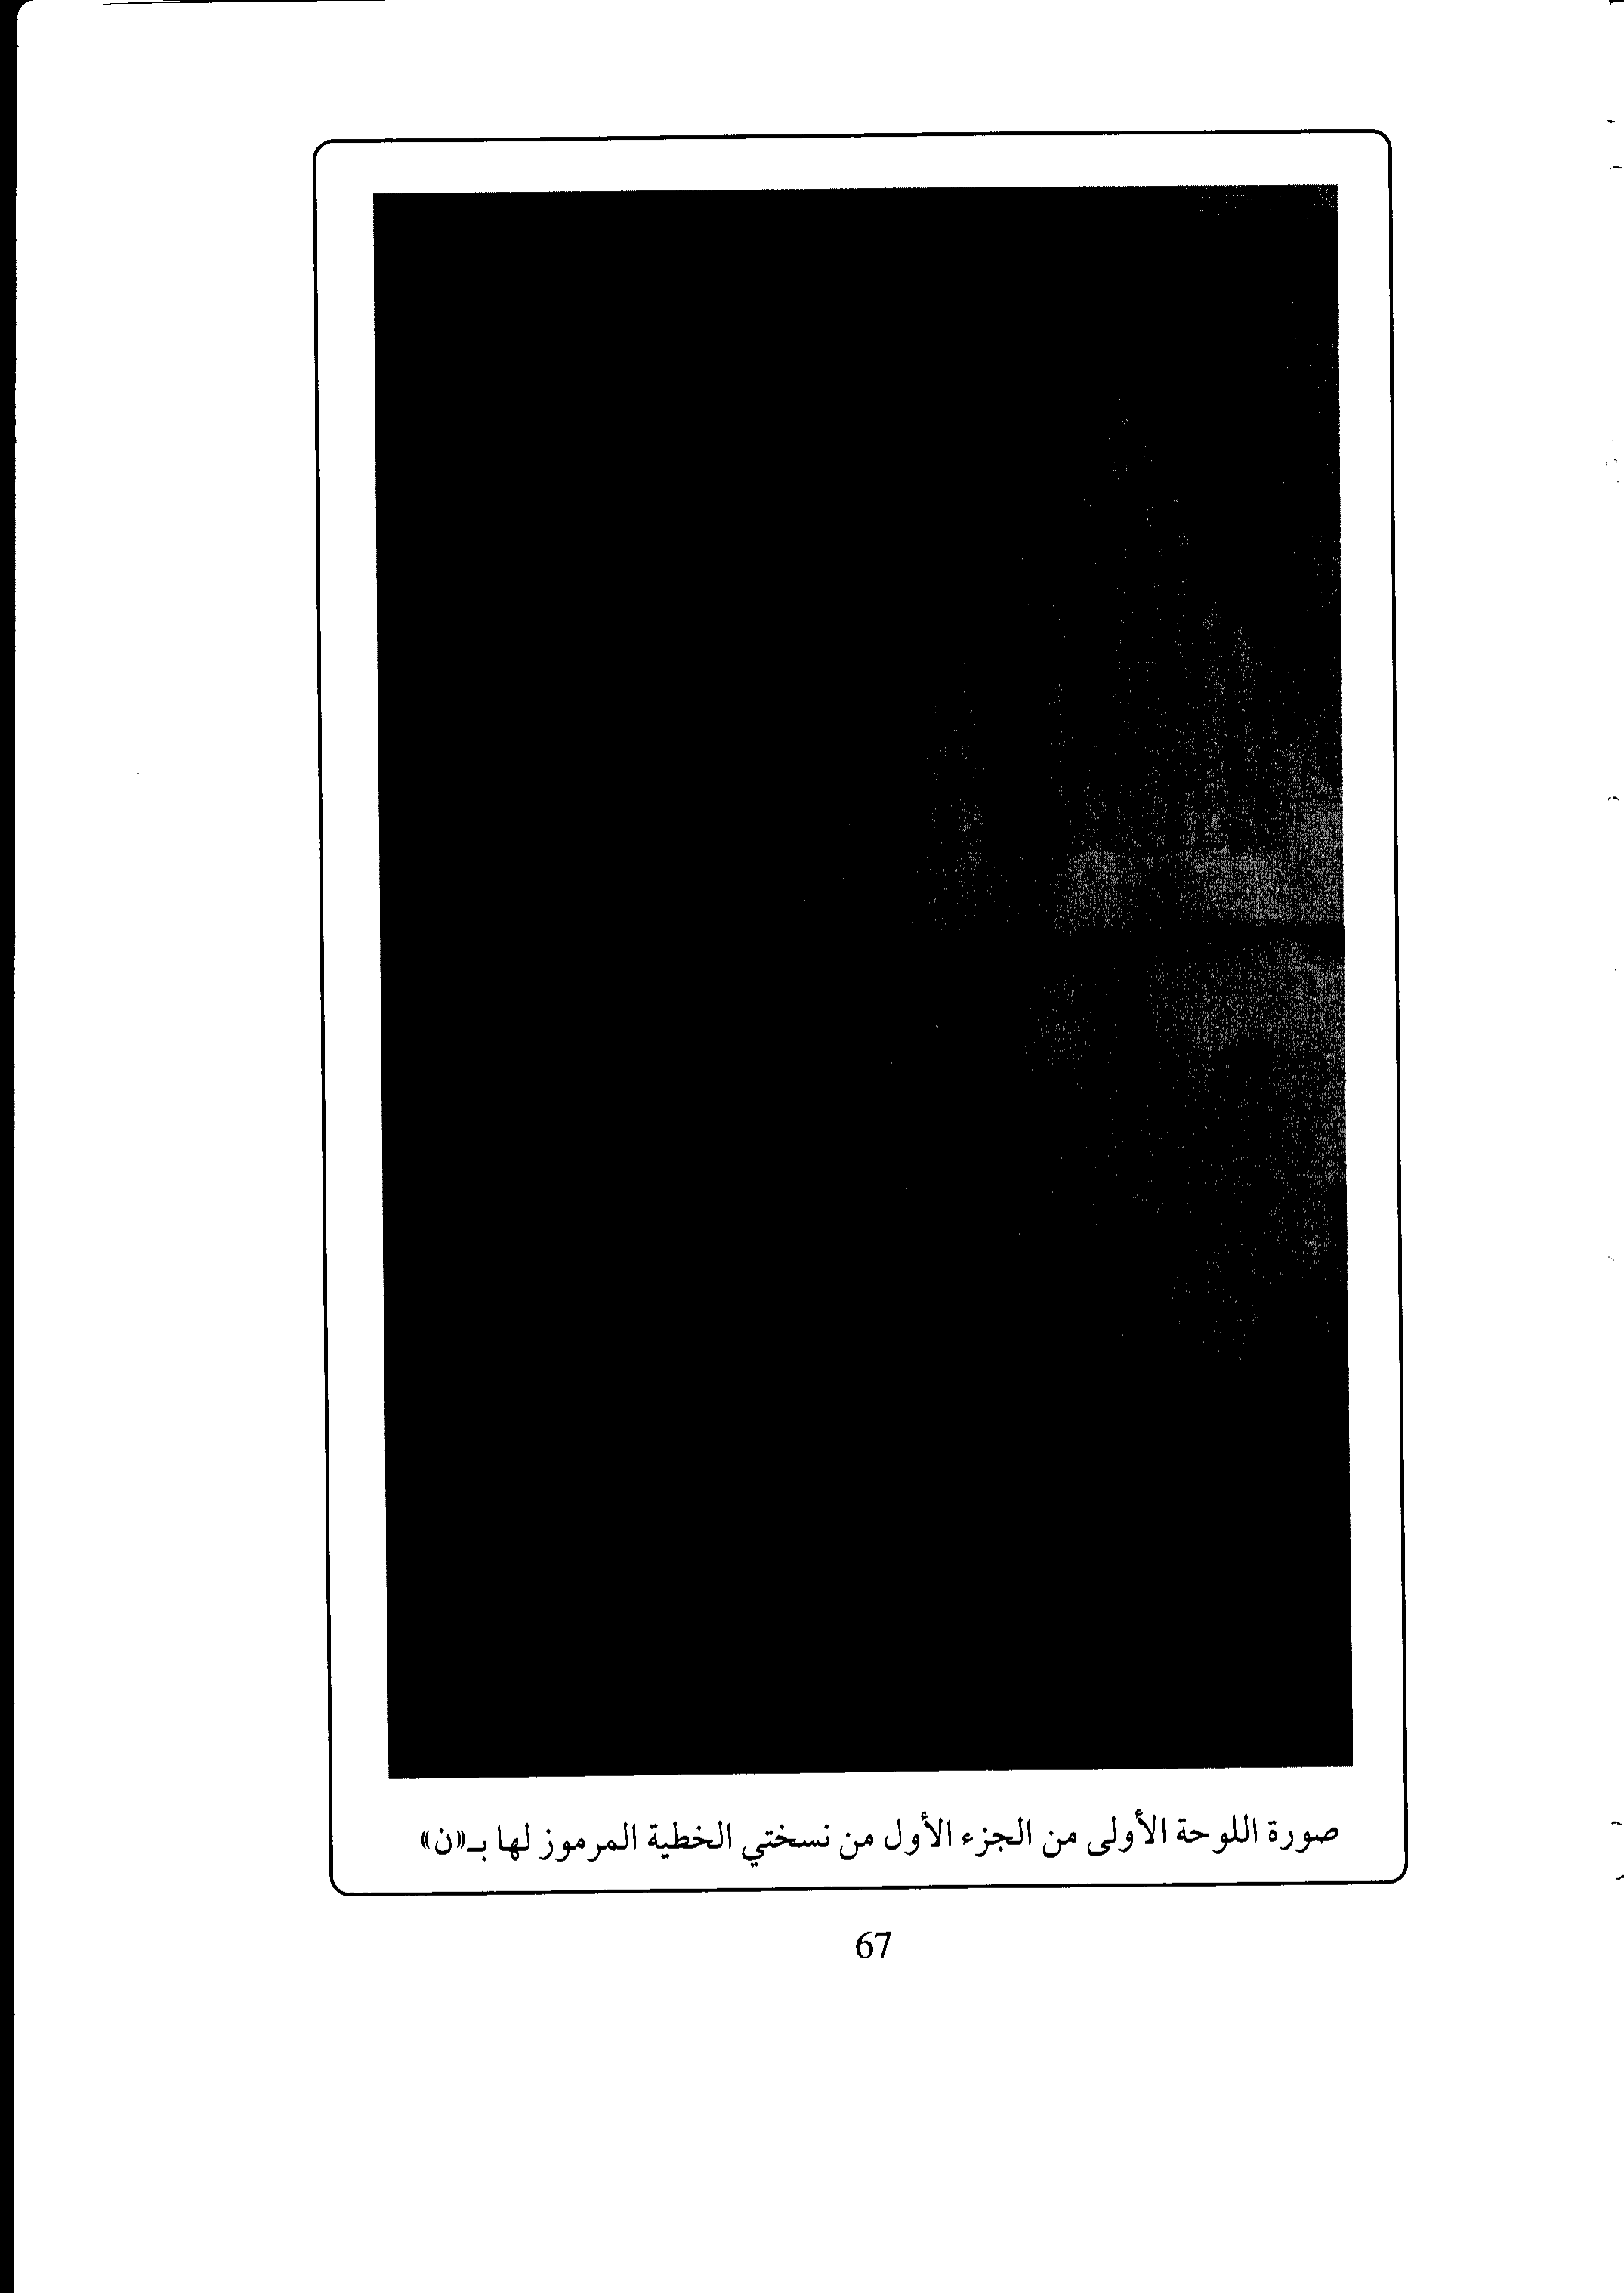 صورة اللوحة الأولى من الجزء الأول من نسختي الخطية المرموز لها بـ«ن»
67